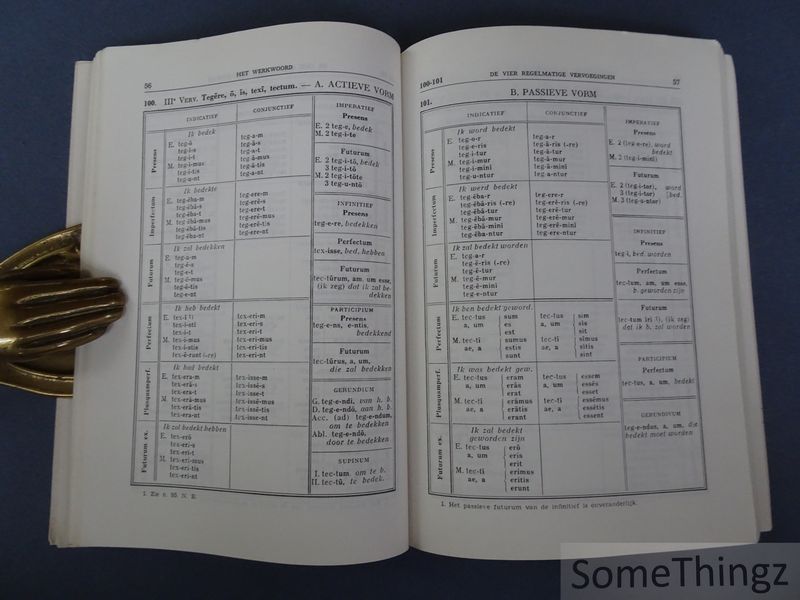 56
HET WERKWOORD
100. IIIᵉ Verv. Tegĕre, ō, ĭs, texī, tectum. — A. ACTIEVE VORM
INDICATIEF
CONJUNCTIEF
Presens
Ik bedek
E. teg-ō
teg-i-s
teg-i-t
M. teg-i-mus
teg-i-tis
teg-u-nt
teg-a-m
teg-ā-s
teg-a-t
teg-ā-mus
teg-ā-tis
teg-a-nt
Imperfectum
Ik bedekte
E. teg-ēba-m
teg-ēbā-s
teg-ēba-t
M. teg-ēbā-mus
teg-ēbā-tis
teg-ēba-nt
teg-ere-m
teg-erē-s
teg-ere-t
teg-erē-mus
teg-erē-tis
teg-ere-nt
Futurum
Ik zal bedekken
E. teg-a-m
teg-ē-s
teg-e-t
M. teg-ē-mus
teg-ē-tis
teg-e-nt
Perfectum
Ik heb bedekt
E. tex-ī ¹)
tex-i-stī
tex-i-t
M. tex-i-mus
tex-i-stis
tex-ē-runt (-re)
tex-eri-m
tex-eri-s
tex-eri-t
tex-eri-mus
tex-eri-tis
tex-eri-nt
Plusquamperf.
Ik had bedekt
E. tex-era-m
tex-erā-s
tex-era-t
M. tex-erā-mus
tex-erā-tis
tex-era-nt
tex-isse-m
tex-issē-s
tex-isse-t
tex-issē-mus
tex-issē-tis
tex-isse-nt
Futurum ex.
Ik zal bedekt hebben
E. tex-erō
tex-eri-s
tex-eri-t
M. tex-eri-mus
tex-eri-tis
tex-eri-nt
IMPERATIEF
Presens
E. 2 teg-e, bedek
M. 2 teg-i-te
Futurum
E. 2 teg-i-tō, bedek
3 teg-i-tō
M. 2 teg-i-tōte
3 teg-u-ntō
INFINITIEF
Presens
teg-e-re, bedekken
Perfectum
tex-isse, bed. hebben
Futurum
tec-tūrum, am, um esse,
(ik zeg) dat ik zal be-
dekken
PARTICIPIUM
Presens
teg-e-ns, e-ntis,
bedekkend
Futurum
tec-tūrus, a, um,
die zal bedekken
GERUNDIUM
G. teg-e-ndī, van h. b.
D. teg-e-ndō, aan h. b.
Acc. (ad) teg-e-ndum,
om te bedekken
Abl. teg-e-ndō,
door te bedekken
SUPINUM
I. tec-tum, om te b.
II. tec-tū, te bedek.
1. Zie n. 95. N. B.
100-101
DE VIER REGELMATIGE VERVOEGINGEN
57
101.
B. PASSIEVE VORM
INDICATIEF
CONJUNCTIEF
Presens
Ik word bedekt
E. teg-o-r
teg-e-ris
teg-i-tur
M. teg-i-mur
teg-i-minī
teg-u-ntur
teg-a-r
teg-ā-ris (-re)
teg-ā-tur
teg-ā-mur
teg-ā-minī
teg-a-ntur
Imperfectum
Ik werd bedekt
E. teg-ēba-r
teg-ēbā-ris (-re)
teg-ēbā-tur
M. teg-ēbā-mur
teg-ēbā-minī
teg-ēba-ntur
teg-ere-r
teg-erē-ris (-re)
teg-erē-tur
teg-erē-mur
teg-erē-minī
teg-ere-ntur
Futurum
Ik zal bedekt worden
E. teg-a-r
teg-ē-ris (-re)
teg-ē-tur
M. teg-ē-mur
teg-ē-minī
teg-e-ntur
Perfectum
Ik ben bedekt geword.
E. tec-tus sum
a, um es
est
M. tec-tī sumus
ae, a estis
sunt
tec-tus sim
a, um sīs
sit
tec-tī sīmus
ae, a sītis
sint
Plusquamperf.
Ik was bedekt gew.
E. tec-tus eram
a, um erās
erat
M. tec-tī erāmus
ae, a erātis
erant
tec-tus essem
a, um essēs
esset
tec-tī essēmus
ae, a essētis
essent
Futurum ex.
Ik zal bedekt
geworden zijn
E. tec-tus erō
a, um eris
erit
M. tec-tī erimus
ae, a eritis
erunt
IMPERATIEF
Presens
E. 2 (teg-e-re), word
bedekt
M. 2 (teg-i-minī)
Futurum
E. 2 (teg-i-tor), word
3 (teg-i-tor), [bed.
M. 3 (teg-u-ntor)
INFINITIEF
Presens
teg-ī, bed. worden
Perfectum
tec-tum, am, um esse,
b. geworden zijn
Futurum
tec-tum īrī ¹), (ik zeg)
dat ik b. zal worden
PARTICIPIUM
Perfectum
tec-tus, a, um, bedekt
GERUNDIVUM
teg-e-ndus, a, um, die
bedekt moet worden
1. Het passieve futurum van de infinitief is onveranderlijk.
SomeThingz